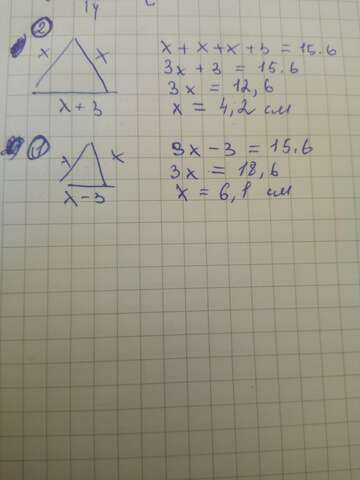 2
x x
x + 3
x + x + x + 3 = 15.6
3x + 3 = 15.6
3x = 12,6
x = 4,2 см
1
x x
x - 3
3x - 3 = 15.6
3x = 18,6
x = 6,1 см